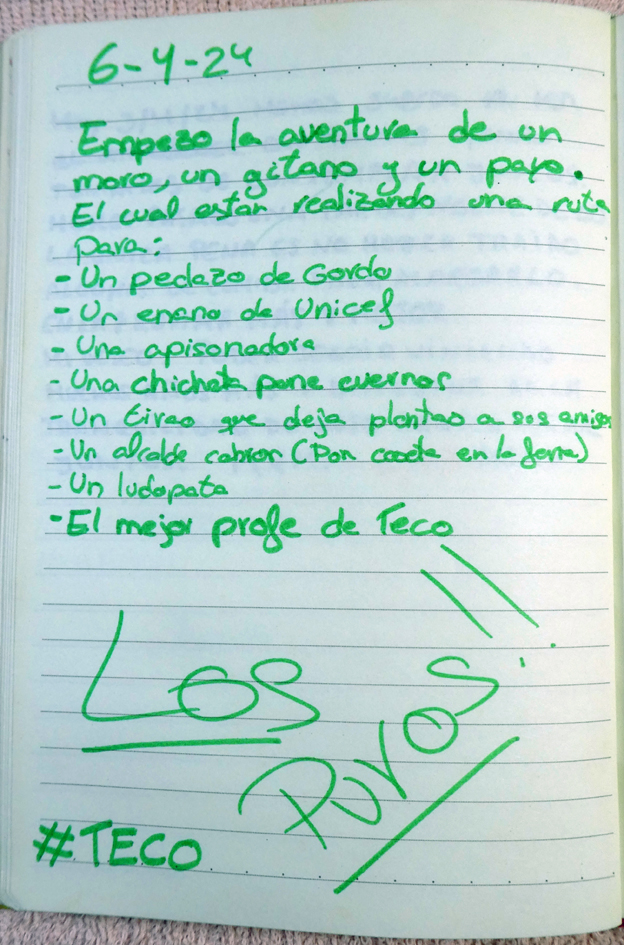 6-4-24
Empezo la aventura de un
moro, un gitano y un payo.
El cual estan realizando una ruta
para:
- Un pedazo de Gordo
- Un enano de Unicef
- Una apisonadora
- Una chicheta pone cuernos
- Un tirao que deja plantao a sos amigos
- Un alcalde cabron (Pon caseta en la feria)
- Un ludopata
- El mejor profe de Teco
Los
Puros!!
#TECO